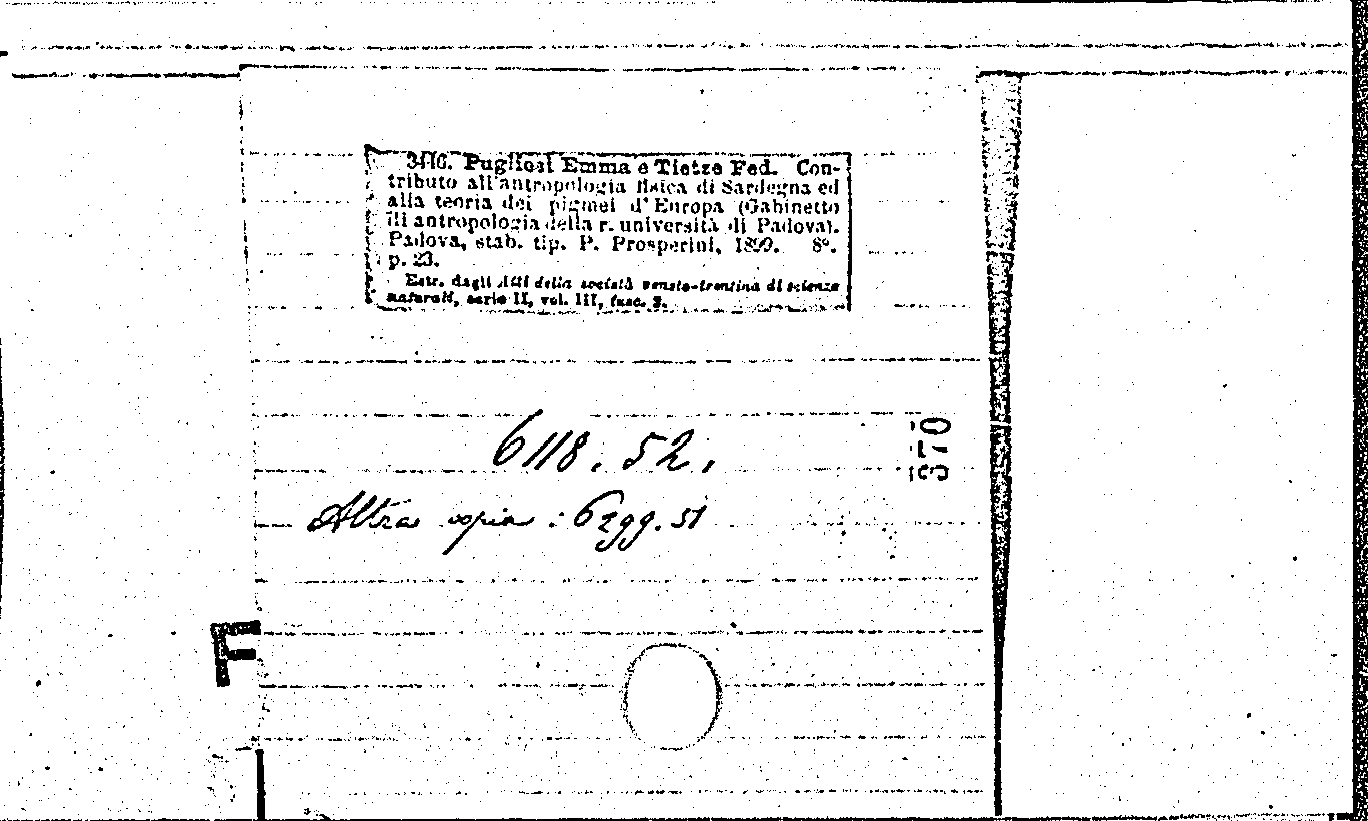 3416. Pugliesi Emma e Tietze Fed. Con-
tributo all'antropologia fisica di Sardegna ed
alla teoria dei pigmei d'Europa (Gabinetto
di antropologia della r. università di Padova).
Padova, stab. tip. P. Prosperini, 1899. 8°.
p. 23.
Estr. dagli Atti della società veneto-trentina di scienze
naturali, serie II, vol. III, fasc. 2.
6118. 52.
370
Altra copia : 6299. 51
F